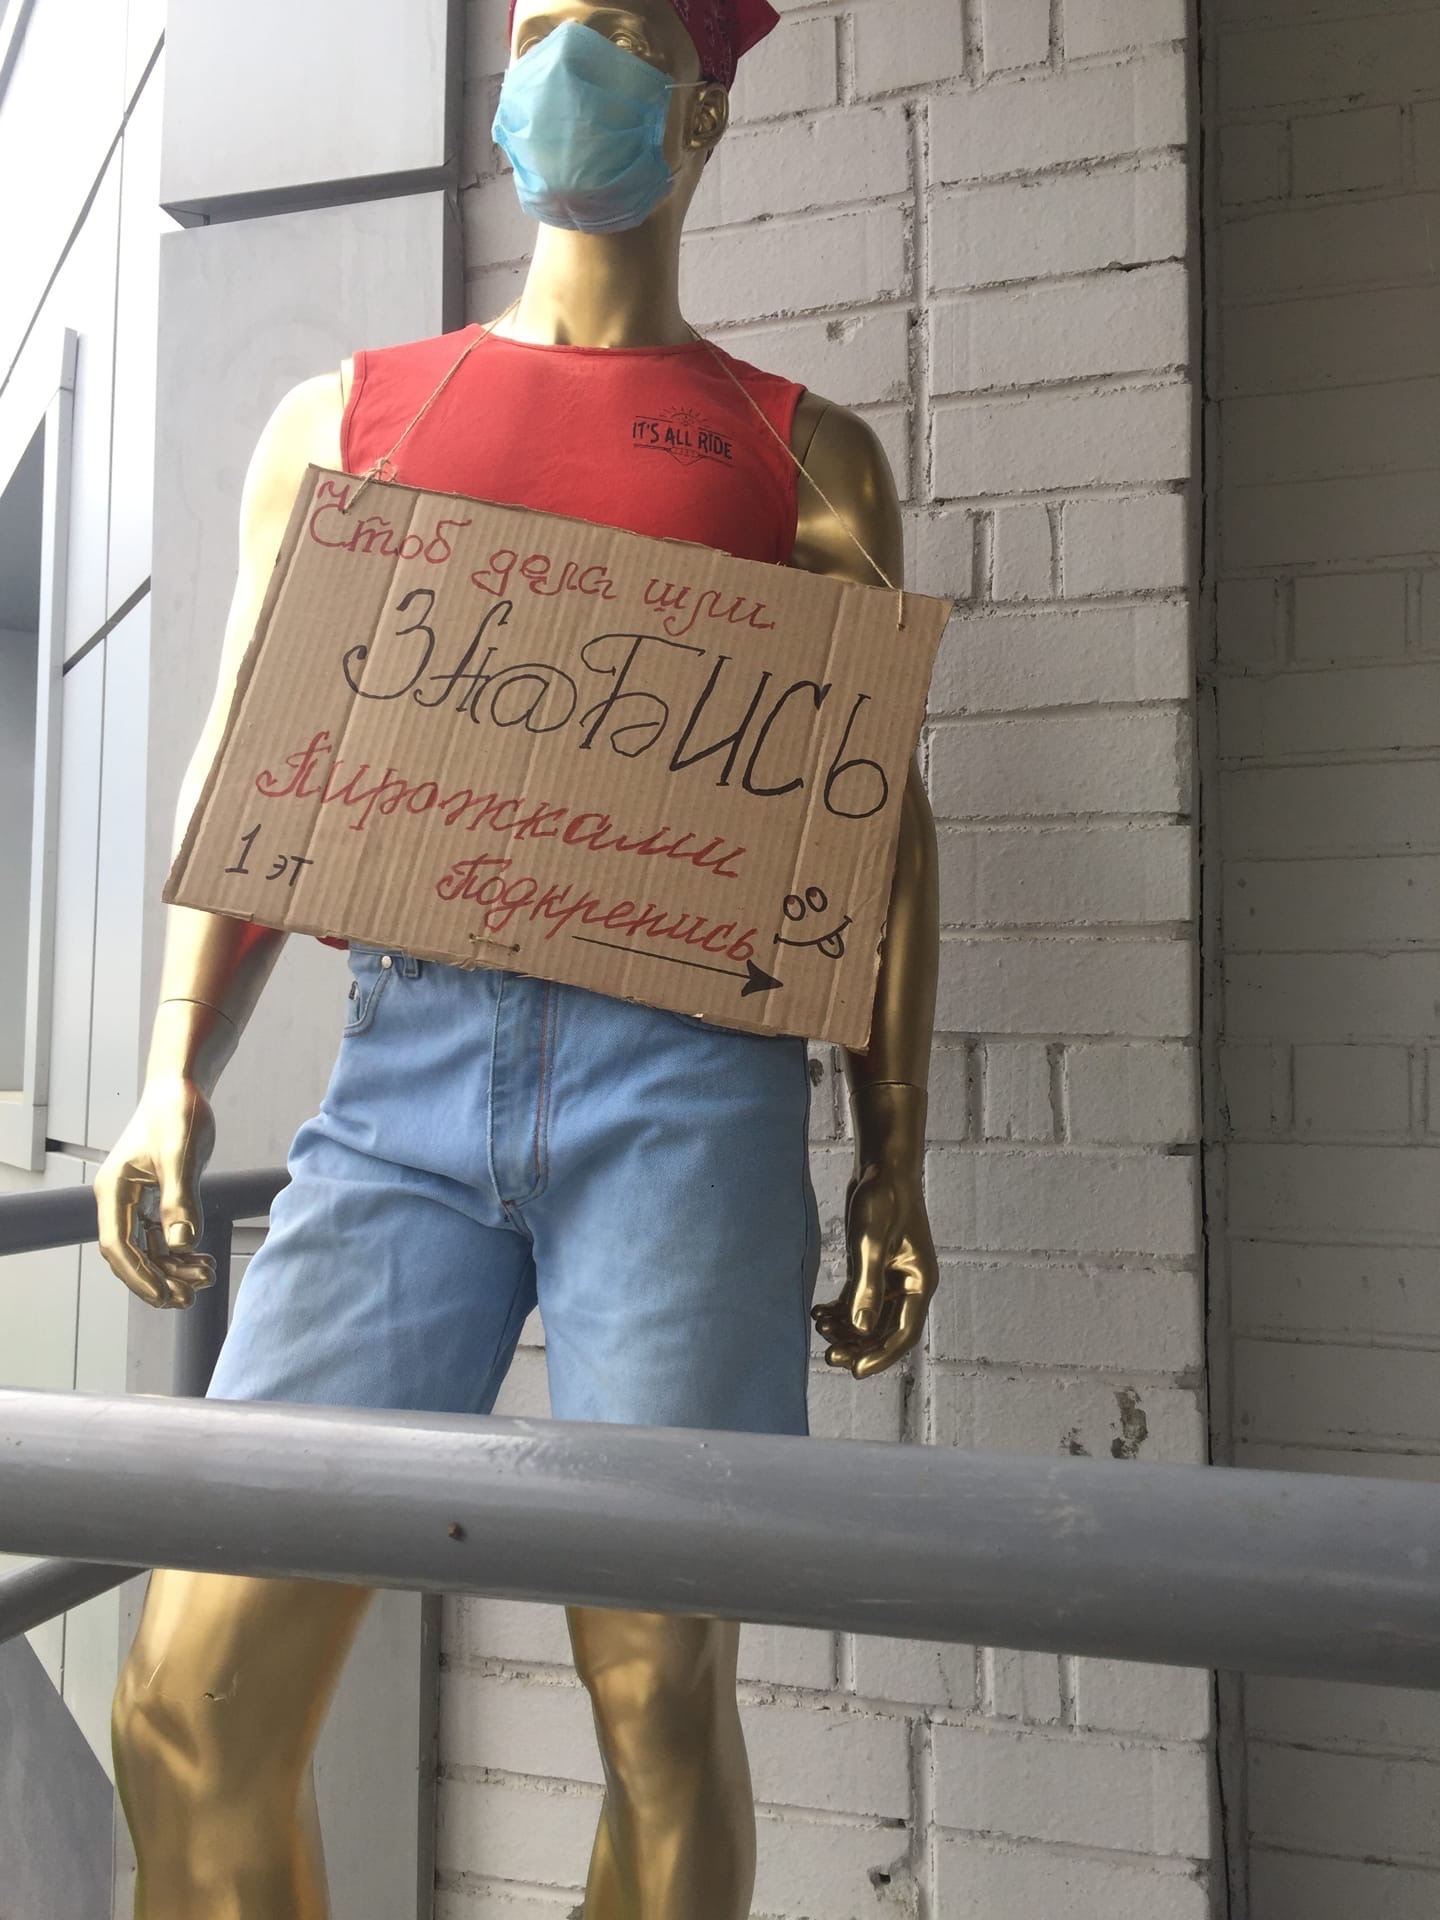 IT'S ALL RIDE
Чтоб дела шли
ЗА@БИСЬ
Пирожками
1 эт
Подкрепись